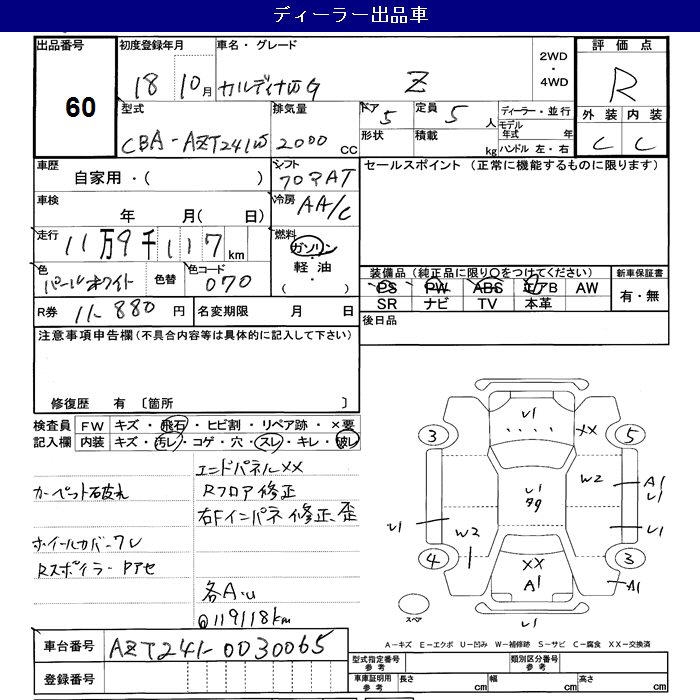 ディーラー出品車
出品番号 初度登録年月 車名・グレード 2WD・4WD 評価点
60 18 10月 カルディナWG Z R
型式 排気量 ドア 定員 ディーラー・並行 外装 内装
CBA-AZT241W 2000 CC 5 5人 モデル年式 年 C C
形状 積載 kg ハンドル 左・右
車歴 シフト セールスポイント(正常に機能するものに限ります)
自家用・( ) フロアAT
車検 冷房
年 月( 日) AA/C
走行 燃料
11万9千117km ガソリン・軽油・( )
色 色替 色コード 装備品(純正品に限り○をつけてください) 新車保証書
パールホワイト 070 PS PW ABS エアB AW 有・無
SR ナビ TV 本革
R券 11,880円 名変期限 月 日 後日品
注意事項申告欄(不具合内容等は具体的に記入して下さい)
修復歴 有 〔箇所 〕
検査員 FW キズ・飛石・ヒビ割・リペア跡・×要
記入欄 内装 キズ・汚レ・コゲ・穴・スレ・キレ・破レ
エンドパネルXX
カーペット破れ Rフロア修正
右Fインパネ修正、歪
ホイールカバーワレ
Rスポイラー Pアセ
各A・U
@119118km
U1
XX
3 5
W2 A1
U1
U1
U1 U1
W2
4 3
XX
A1 A1
スペア U1
A-キズ E-エクボ U-凹み W-補修跡 S-サビ C-腐食 XX-交換済
車台番号 AZT241-0030065
登録番号
型式指定番号 参考 類別区分番号 参考
車庫証明用 参考 長さ cm 幅 cm 高さ cm